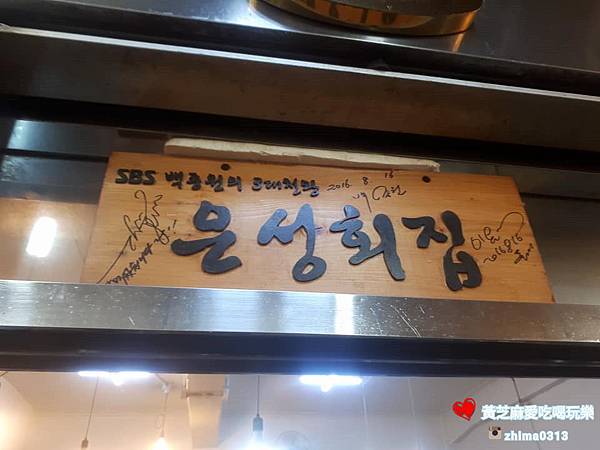 SBS 백종원의 3대천왕 2016. 8. 16
은성회집
2016 8 16
黃芝麻愛吃喝玩樂
zhima0313